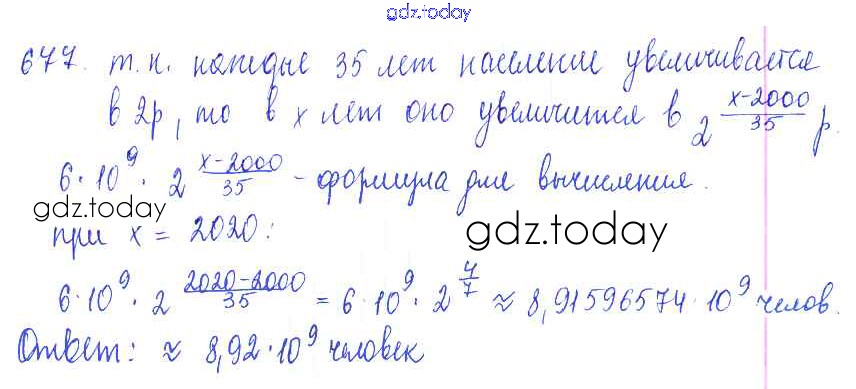 gdz.today
677. т.к. каждые 35 лет население увеличивается
в 2р, то в x лет оно увеличится в 2^((x-2000)/35) р.
6·10^9·2^((x-2000)/35) - формула для вычисления.
gdz.today
при x = 2020:
gdz.today
6·10^9·2^((2020-2000)/35) = 6·10^9·2^(4/7) ≈ 8,91596574·10^9 челов.
Ответ: ≈ 8,92·10^9 человек